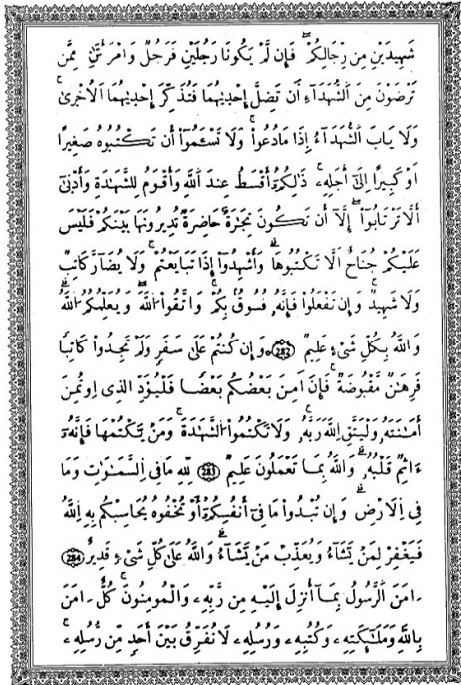 شَهِيدَيْنِ مِن رِّجَالِكُمْ فَإِن لَّمْ يَكُونَا رَجُلَيْنِ فَرَجُلٌ وَامْرَأَتَٰنِ مِمَّن
تَرْضَوْنَ مِنَ اَ۬لشُّهَدَآءِ اَ۬ن تَضِلَّ إِحْدَيٰهُمَا فَتُذَكِّرَ إِحْدَيٰهُمَا اَ۬لُاخْرَىٰ
وَلَا يَابَ اَ۬لشُّهَدَآءُ إِذَا مَا دُعُواْ وَلَا تَسْـَٔمُوٓاْ أَن تَكْتُبُوهُ صَغِيرًا
اَوْ كَبِيرًا اِلَىٰٓ أَجَلِهِۦ ذَٰلِكُمُۥٓ أَقْسَطُ عِندَ اَ۬للَّهِ وَأَقْوَمُ لِلشَّهَٰدَةِ وَأَدْنَىٰٓ
أَلَّا تَرْتَابُوٓاْ إِلَّآ أَن تَكُونَ تِجَٰرَةٌ حَاضِرَةٌ تُدِيرُونَهَا بَيْنَكُمْ فَلَيْسَ
عَلَيْكُمْ جُنَاحٌ اَلَّا تَكْتُبُوهَا وَأَشْهِدُوٓاْ إِذَا تَبَايَعْتُمْ وَلَا يُضَآرَّ كَاتِبٌ
وَلَا شَهِيدٌ وَإِن تَفْعَلُواْ فَإِنَّهُۥ فُسُوقُۢ بِكُمْ وَاتَّقُواْ اُ۬للَّهَ وَيُعَلِّمُكُمُ اُ۬للَّهُ
وَاللَّهُ بِكُلِّ شَےْءٍ عَلِيمٌ 282 وَإِن كُنتُمْ عَلَىٰ سَفَرٍ وَلَمْ تَجِدُواْ كَاتِبًا
فَرِهَٰنٌ مَّقْبُوضَةٌ فَإِنَ اَمِنَ بَعْضُكُم بَعْضًا فَلْيُؤَدِّ اِ۬لذِى اِ۟وتُمِنَ
أَمَٰنَتَهُۥ وَلْيَتَّقِ اِ۬للَّهَ رَبَّهُۥ وَلَا تَكْتُمُواْ اُ۬لشَّهَٰدَةَ وَمَنْ يَّكْتُمْهَا فَإِنَّهُۥٓ
ءَاثِمٌ قَلْبُهُۥ وَاللَّهُ بِمَا تَعْمَلُونَ عَلِيمٌ 283 لِلهِ مَا فِى اِ۬لسَّمَٰوَٰتِ وَمَا
فِى اِ۬لَارْضِ وَإِن تُبْدُواْ مَا فِىٓ أَنفُسِكُمُۥٓ أَوْ تُخْفُوهُ يُحَاسِبْكُم بِهِ اِ۬للَّهُ
فَيَغْفِرْ لِمَنْ يَّشَآءُ وَيُعَذِّبْ مَنْ يَّشَآءُ وَاللَّهُ عَلَىٰ كُلِّ شَےْءٍ قَدِيرٌ 284
ءَامَنَ اَ۬لرَّسُولُ بِمَآ أُنزِلَ إِلَيْهِ مِن رَّبِّهِۦ وَالْمُومِنُونَ كُلٌّ ءَامَنَ
بِاللَّهِ وَمَلَٰٓئِكَتِهِۦ وَكُتُبِهِۦ وَرُسُلِهِۦ لَا نُفَرِّقُ بَيْنَ أَحَدٍ مِّن رُّسُلِهِۦ